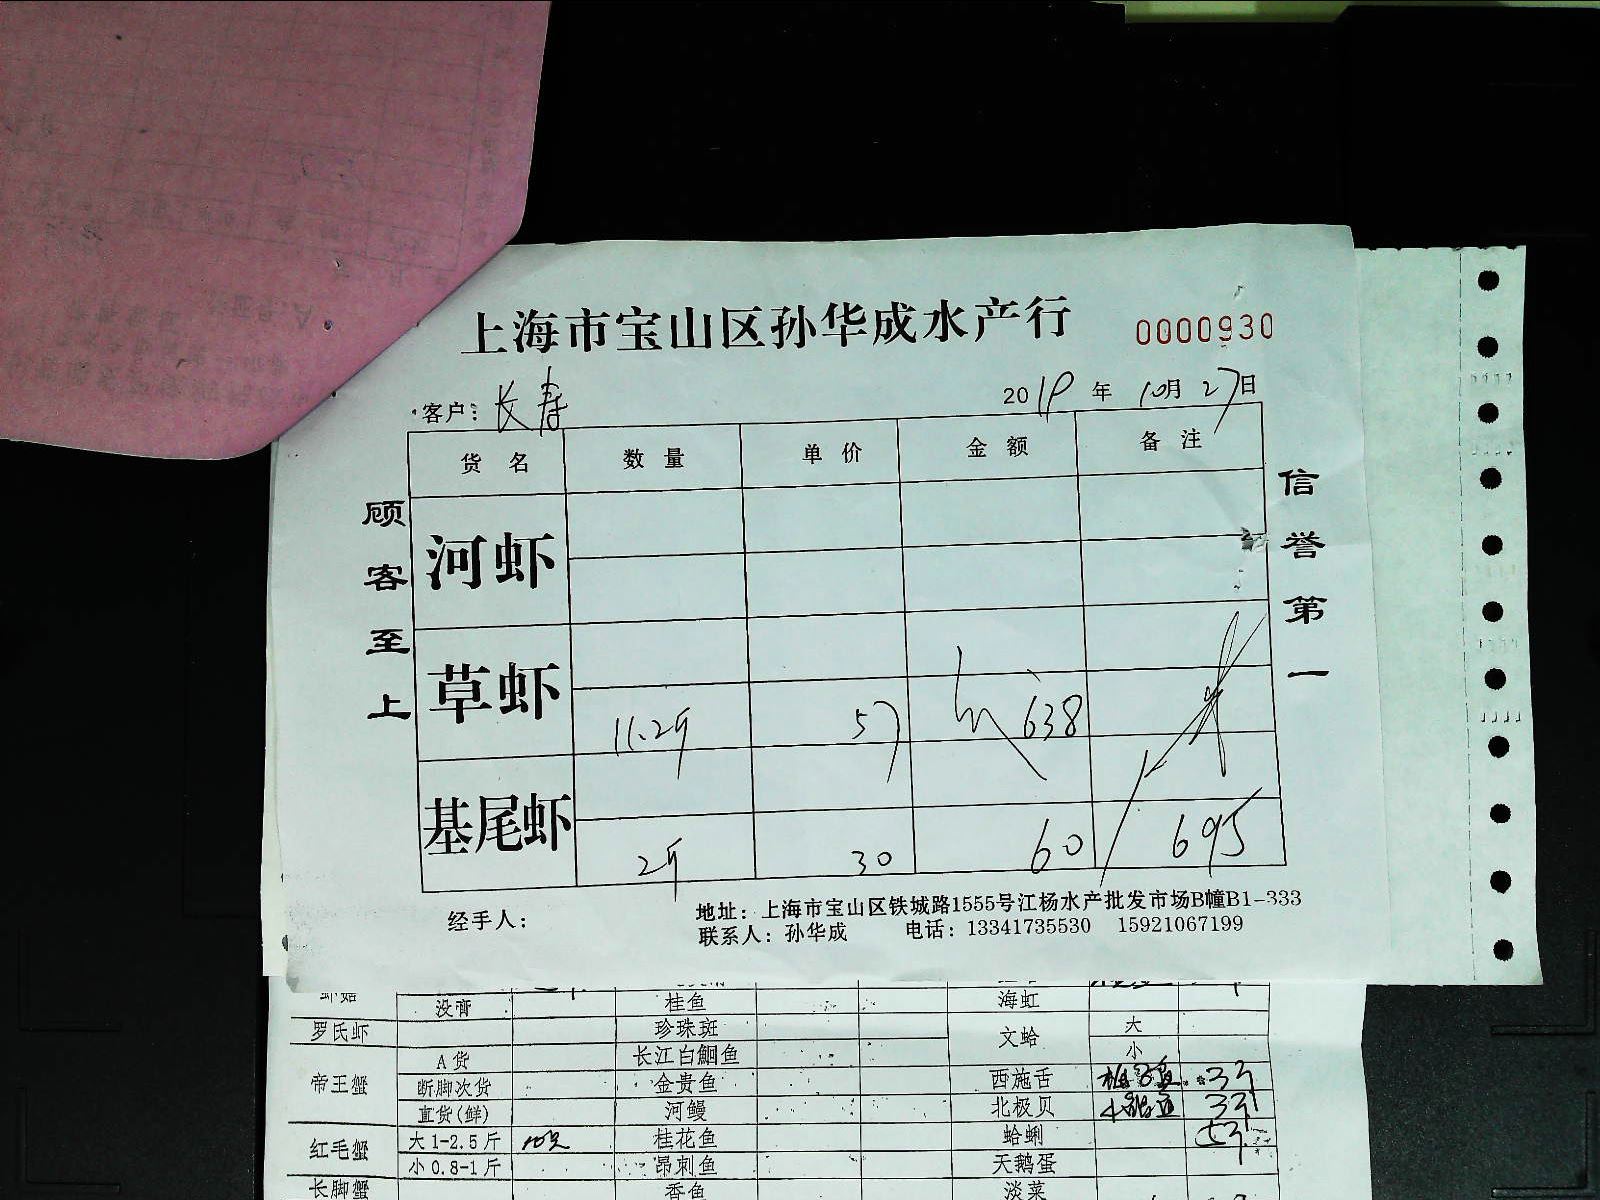 上海市宝山区孙华成水产行 0000930
客户: 长寿 2019年 10月 27日
货名 数量 单价 金额 备注
河虾
草虾
11.2斤 57 638
基尾虾
2斤 30 60 695
顾客至上
信誉第一
经手人: 地址: 上海市宝山区铁城路1555号江杨水产批发市场B幢B1-333
联系人: 孙华成 电话: 13341735530 15921067199
没膏 桂鱼 海虹
罗氏虾 珍珠斑 文蛤 大
帝王蟹 A货 长江白鮰鱼 小
断脚次货 金贵鱼 西施舌 3斤
直货(鲜) 河鳗 北极贝 3斤
红毛蟹 大1-2.5斤 桂花鱼 蛤蜊
小0.8-1斤 昂刺鱼 天鹅蛋
长脚蟹 香鱼 淡菜